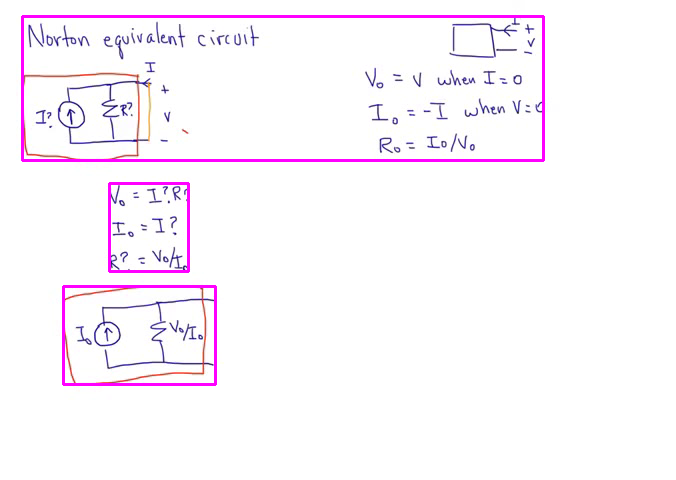 Norton equivalent circuit
I
+
V
-
I
+
I?
R?
V
-
V₀ = V when I = 0
I₀ = -I when V = 0
R₀ = I₀/V₀
V₀ = I?R?
I₀ = I?
R? = V₀/I₀
I₀
V₀/I₀